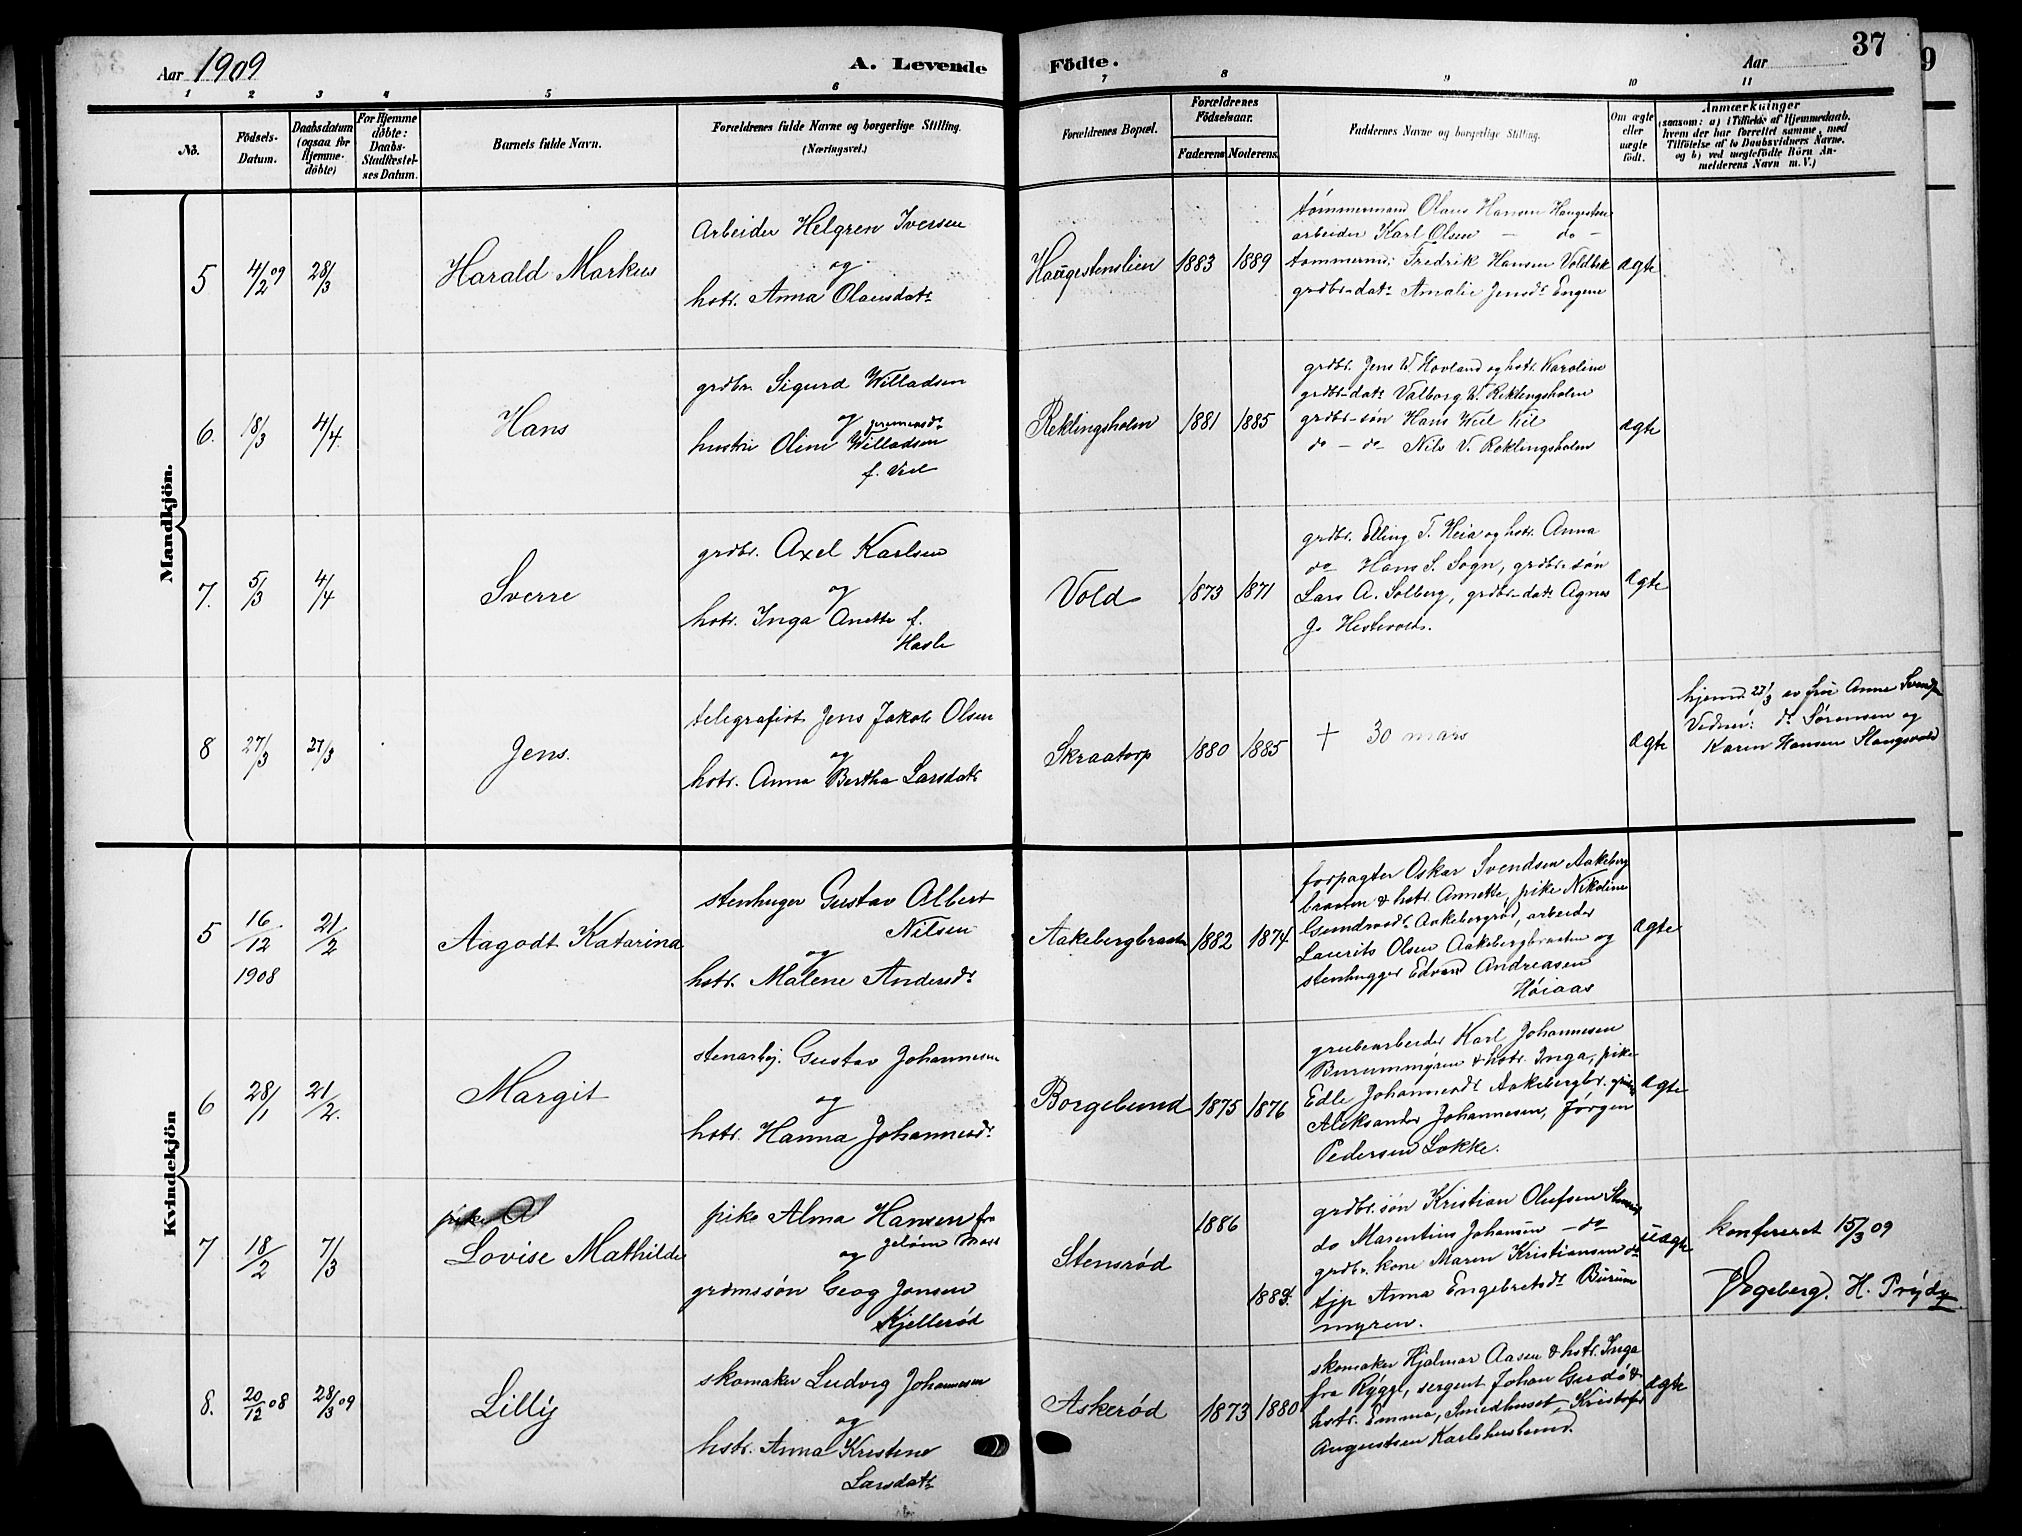 Aar 1909
A. Levende Födte.
Aar
37
9
1 2 3 4 5 6 7 8 9 10 11
No.
Födsels-Datum.
Daabsdatum (ogsaa for Hjemme-döbte)
For Hjemme döbte: Daabs-Stadfæstel-ses Datum.
Barnets fulde Navn.
Forældrenes fulde Navne og borgerlige Stilling. (Næringsvei.)
Forældrenes Bopæl.
Forældrenes Födselsaar.
Faderens Moderens
Faddernes Navne og borgerlige Stilling.
Om ægte eller uægte födt.
Anmærkninger
(saasom: a) i Tilfælde af Hjemmedaab.
hvem der har forrettet samme, med
Tilföielse af to Daabsvidners Navne.
og b) ved uægtefödte Börn An-
melderens Navn m. V.)
Mandkjön.
5 4/2 09 28/3 Harald Markus
Arbeider Helgren Iversen
og
hstr. Anna Olausdatr
Haugestenslien 1883 1889
tømmermand Olaus Hansen Haugesten
arbeider Karl Olsen – do –
tømmerm: Fredrik Hansen Voldbek
grdbr-datr Amalie Jensdr Engene
ægte
6. 18/3 4/4. Hans
grdbr. Sigurd Willadsen
og
hustru Oline Willadsen
Reklingsholm 1881 1885
grdbr. Jens W. Hovland og hstr. Karoline
grdbr-datr Valborg W. Reklingsholm
grdbr-søn Hans Weel
do – do Nils V. Reklingsholm
ægte
7. 5/3 4/4 Sverre
grdbr. Axel Karlsen
og
hstr. Inga Anette f.
Hasle
Vold 1873 1871
grdbr. Elling T. Heia og hstr. Anna
do Hans S. Sogn, grdbr-søn
Lars A. Solberg, grdbr-datr Agnes
J. Hestevold.
ægte
8 27/3 27/3 Jens.
telegrafist Jens Jakob Olsen
og
hstr. Anna Bertha Larsdatr
Skraatorp 1880 1885
+ 30 mars
ægte
hjemd. 27/3 av fru Anne
Vidner: Sørensen og
Karen Hansen Slangsvold
Kvindekjön
5 16/12 1908 21/2 Aagodt Katarina
stenhuger Gustav Albert
Nilsen
og
hstr. Malene Andersdr
Aakebergbraaten 1882 1874
forpagter Oskar Svendsen Aakeberg
braaten & hstr. Annette, pike Nikoline
Gundersdr Aakebergrød, arbeider
Laurits Olsen Aakebergbraaten og
stenhugger Edvard Andreasen
Høiaas
ægte
6 28/1 21/2. Margit
stenarbj. Gustav Johannesen
og
hstr. Hanna Johannesdr
Borgelund 1875 1876
grubearbeider Karl Johannesen
& hstr. Inga, pike
Edle Johannesdr Aakebergbr.
Aleksander Johannesen, Jørgen
Pedersen Løkke.
ægte
7 18/2 7/3 pike Al
Lovise Mathilde
pike Alma Hansen fra
og Jeløen Moss
grdmssøn Georg Jensen
Kjellerød
Stensrød 1886
1889
grdbr. søn Kristian Olufsen
do Marentius Johansen – do
grdbr. kone Maren Kristiansen do
tjp Anna Engebretsdr Burum
myren.
uægte
konfereret 15/3 09
Egeberg. H. Prydz
8. 20/12 08 28/3 09 Lilly
skomaker Ludvig Johannesen
og
hstr. Anna Kristine
Larsdatr
Askerød 1873 1880
skomaker Hjalmar Aasen & hstr. Inga
fra Rygge, sergent Johan &
hstr. Emma, Smedhuset, Kristofer
Augustsen Karlshuslund.
ægte